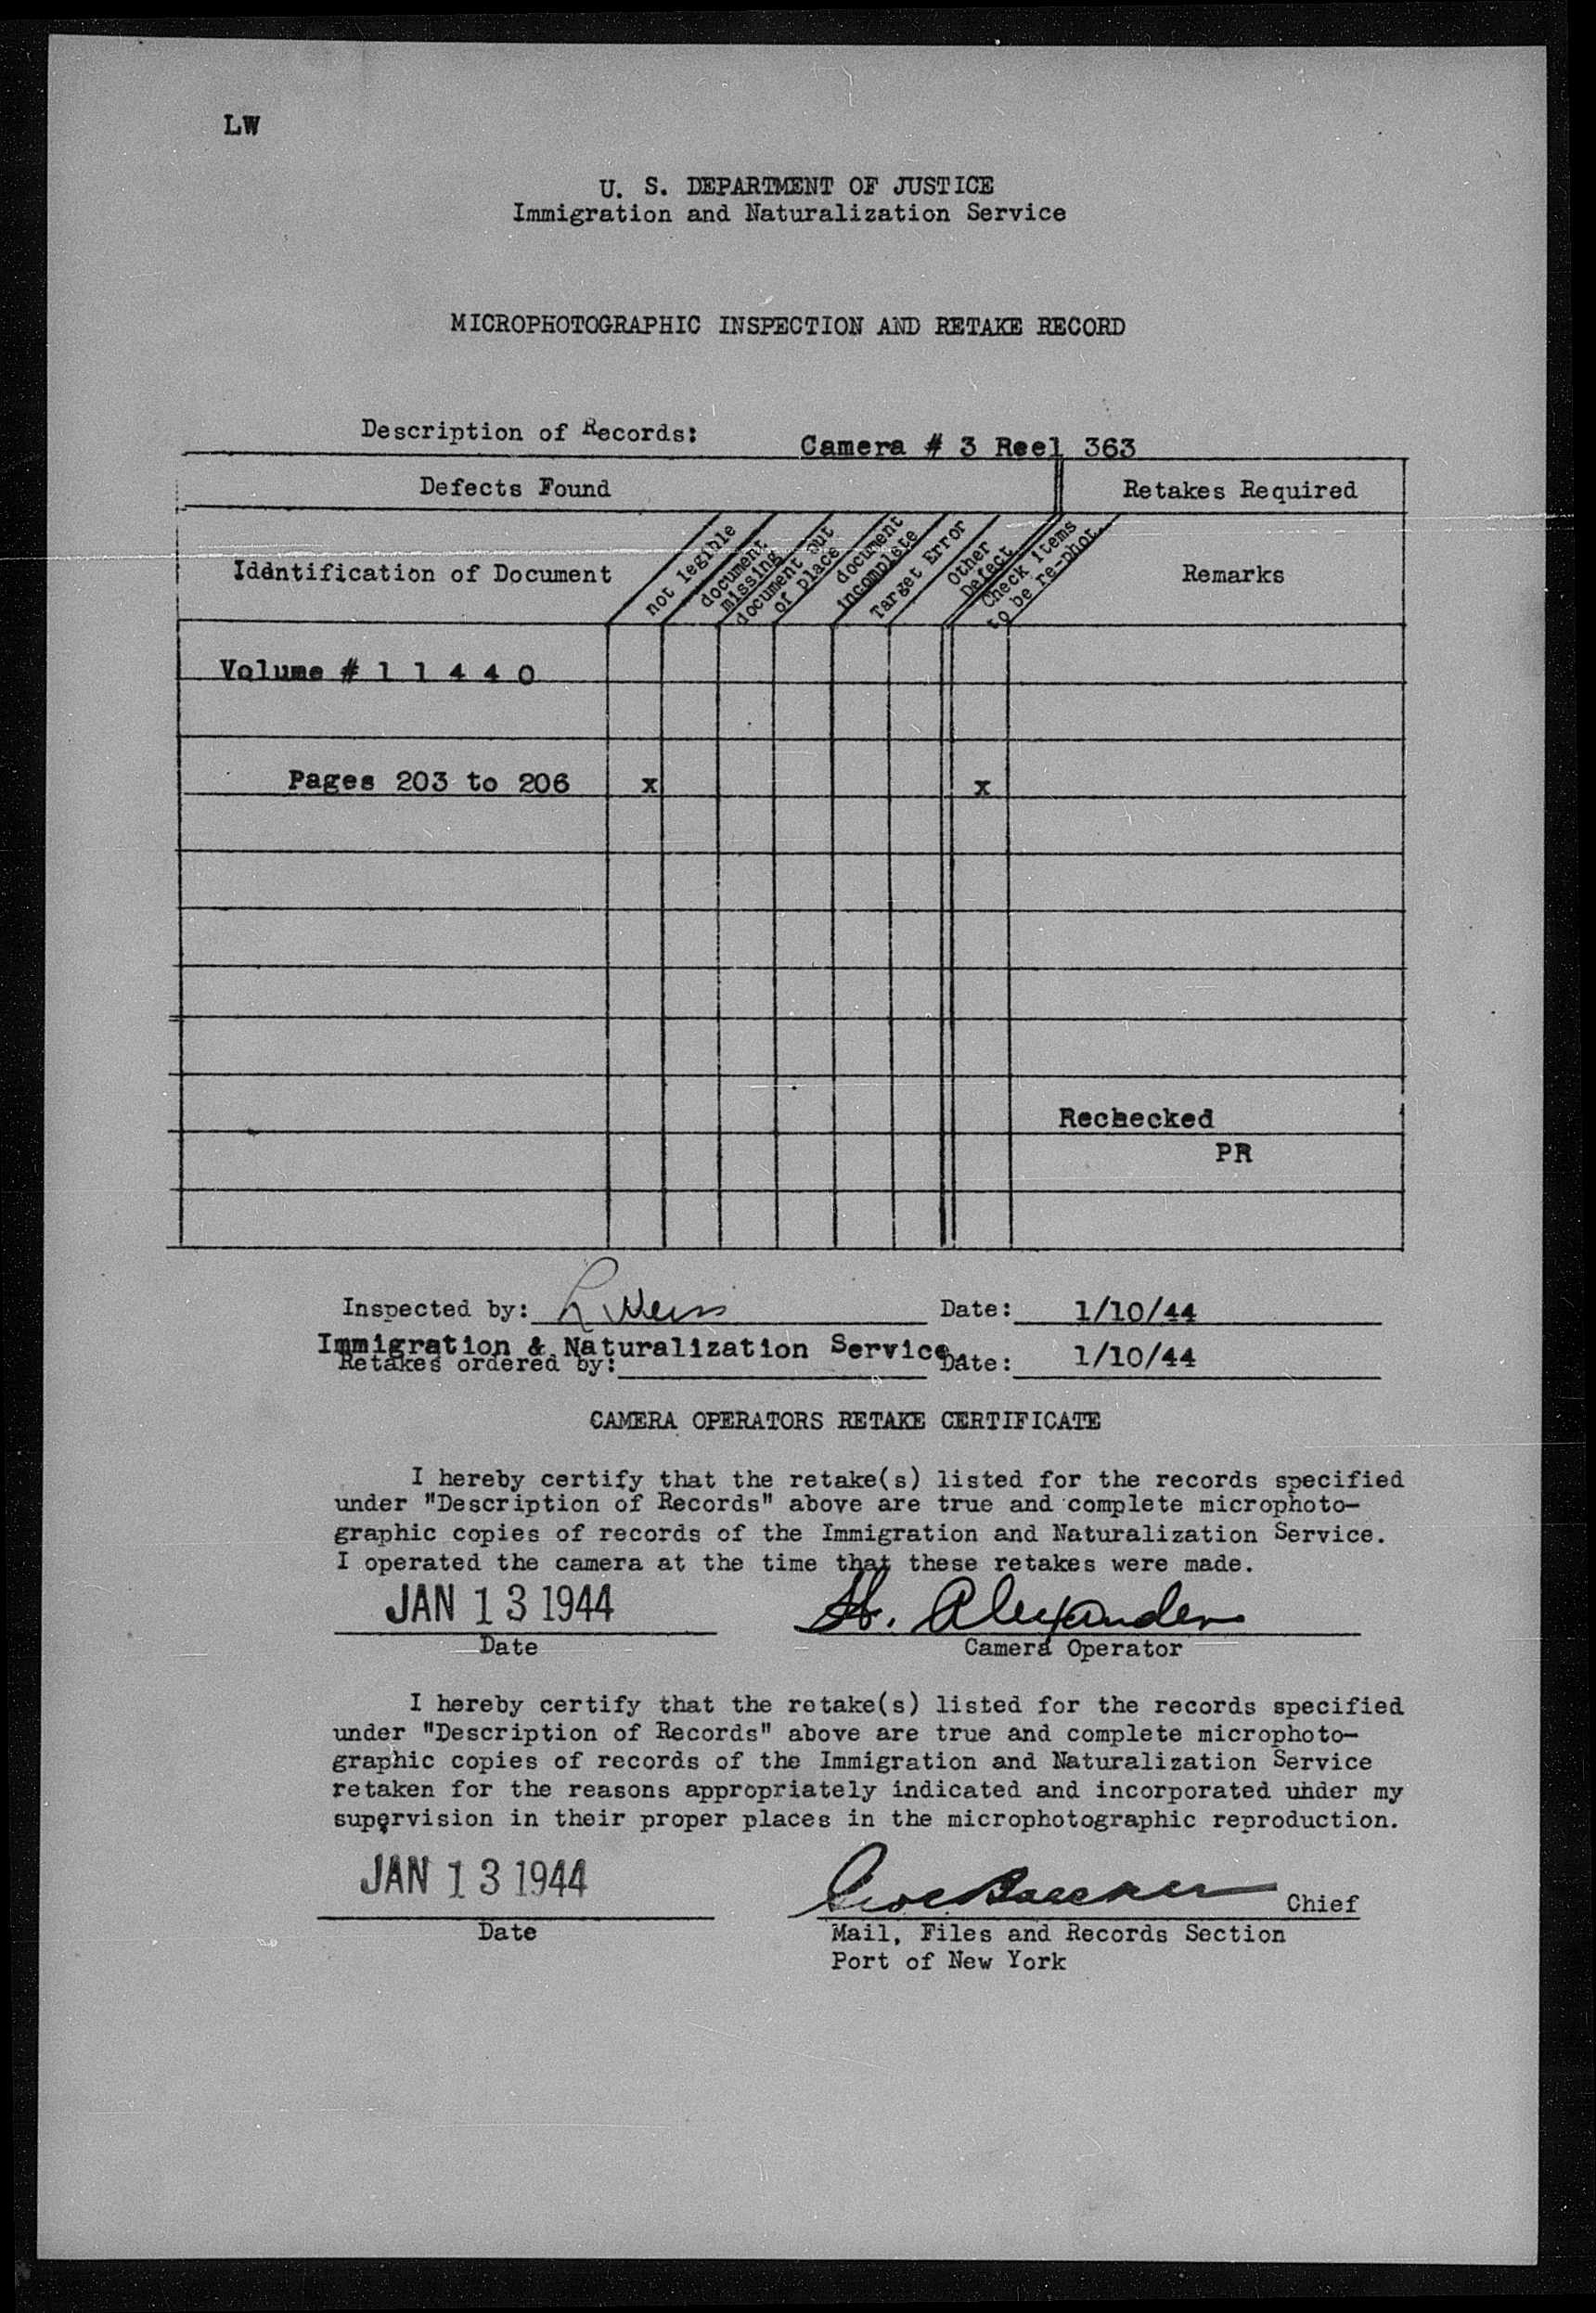 LW
U. S. DEPARTMENT OF JUSTICE
Immigration and Naturalization Service
MICROPHOTOGRAPHIC INSPECTION AND RETAKE RECORD
Description of Records: Camera # 3 Reel 363
Defects Found Retakes Required
Identification of Document
not legible
document
missing
document out
of place
document
incomplete
Target Error
Other
Defect
Check items
to be re-phot.
Remarks
Volume # 1 1 4 4 0
Pages 203 to 206 x x
Rechecked
PR
Inspected by: L Weiss Date: 1/10/44
Immigration & Naturalization Service
Retakes ordered by: Date: 1/10/44
CAMERA OPERATORS RETAKE CERTIFICATE
I hereby certify that the retake(s) listed for the records specified
under "Description of Records" above are true and complete microphoto-
graphic copies of records of the Immigration and Naturalization Service.
I operated the camera at the time that these retakes were made.
JAN 13 1944 H. Alexander
Date Camera Operator
I hereby certify that the retake(s) listed for the records specified
under "Description of Records" above are true and complete microphoto-
graphic copies of records of the Immigration and Naturalization Service
retaken for the reasons appropriately indicated and incorporated under my
supervision in their proper places in the microphotographic reproduction.
JAN 13 1944 Chief
Date Mail, Files and Records Section
Port of New York